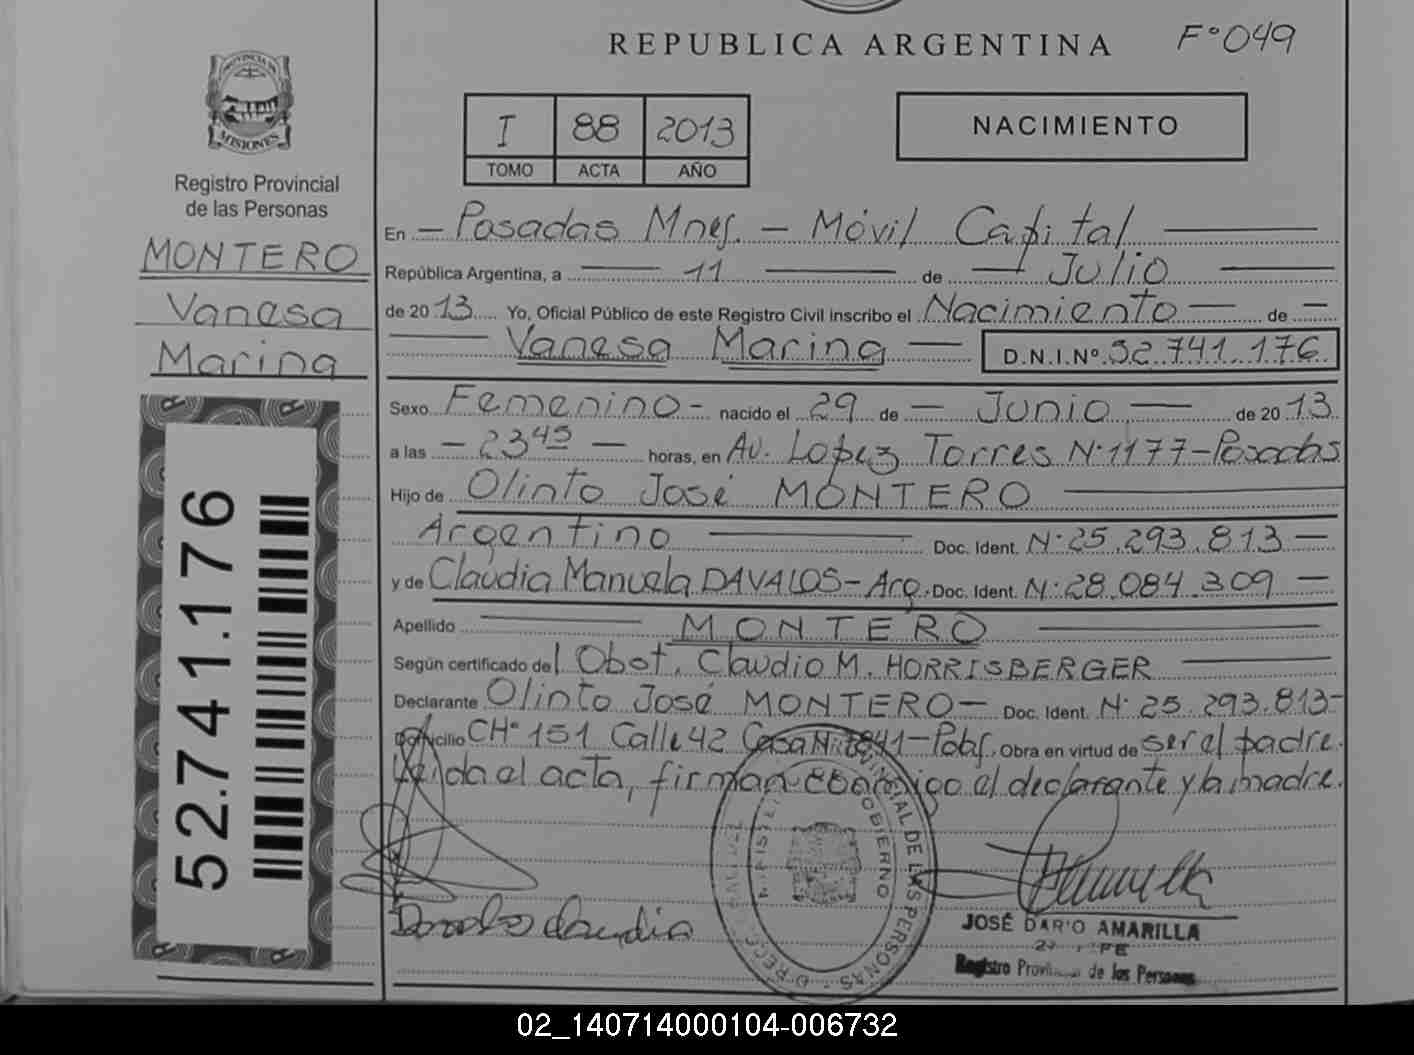 REPUBLICA ARGENTINA
Fº 049
PROVINCIA DE
MISIONES
Registro Provincial
de las Personas
MONTERO
Vanesa
Marina
52.741.176
I 88 2013
TOMO ACTA AÑO
NACIMIENTO
En — Posadas Mnes. — Móvil Capital —
República Argentina, a — 11 — de — Julio —
de 2013 Yo, Oficial Público de este Registro Civil inscribo el Nacimiento — de —
— Vanesa Marina — D.N.I.Nº 52.741.176
Sexo Femenino - nacido el 29 de — Junio — de 2013
a las — 23 45 — horas, en Av. Lopez Torres Nº 1177 - Posadas
Hijo de Olinto José MONTERO —
Argentino — Doc. Ident. Nº 25.293.813 —
y de Claudia Manuela DAVALOS - Arg. Doc. Ident. Nº 28.084.309 —
Apellido — MONTERO —
Según certificado del Obst. Claudio M. HORRISBERGER —
Declarante Olinto José MONTERO — Doc. Ident. Nº 25.293.813 -
Domicilio CHº 151 Calle 42 Casa Nº 1841 - Obra en virtud de ser el padre.
Leida el acta, firman conmigo el declarante y la madre.
Claudia
JOSÉ DARIO AMARILLA
Registro Provincial de las Personas
DE LAS PERSONAS
GOBIERNO
02_140714000104-006732